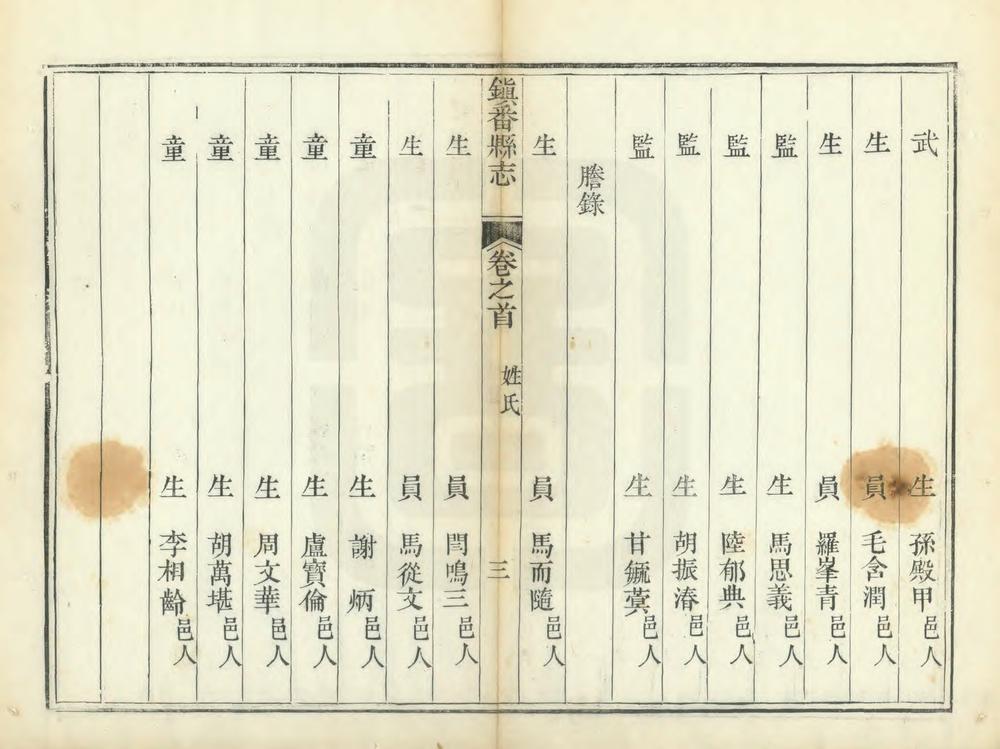 武生孫殿甲邑人
生員毛含潤邑人
生員羅峯青邑人
監生馬思義邑人
監生陸郁典邑人
監生胡振濬邑人
監生甘毓蓂邑人
謄錄
生員馬而隨邑人
鎮番縣志 卷之首 姓氏 三
生員閆鳴三邑人
生員馬從文邑人
童生謝炳邑人
童生盧寶倫邑人
童生周文華邑人
童生胡萬堪邑人
童生李相齡邑人